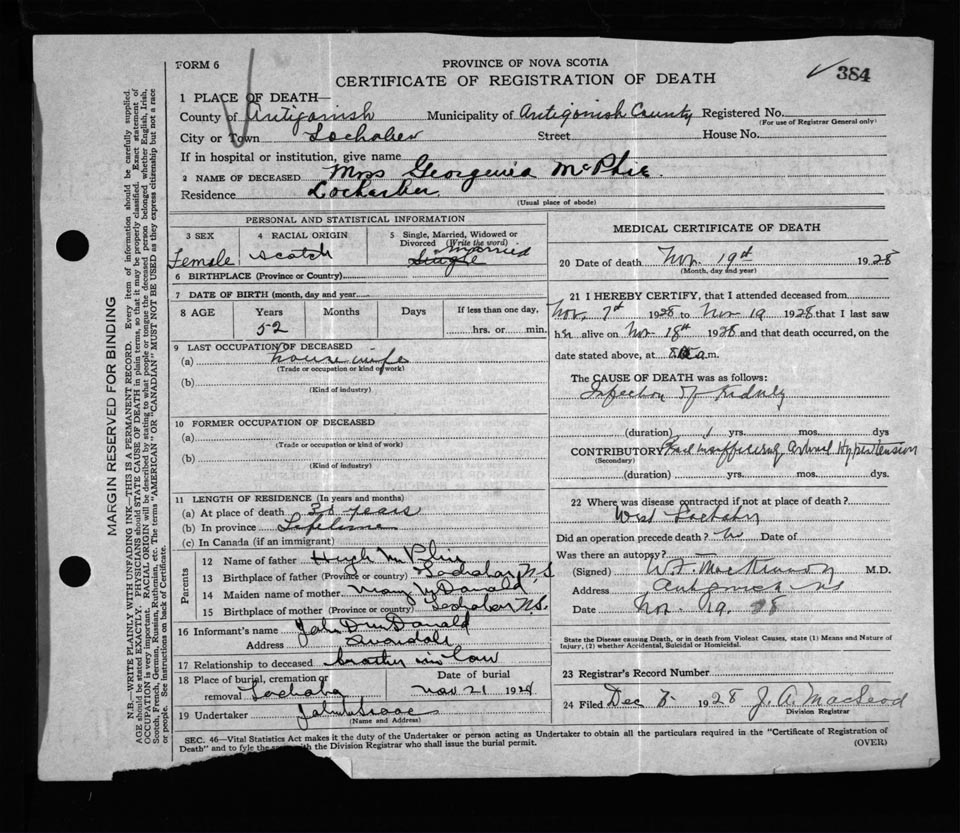 FORM 6
PROVINCE OF NOVA SCOTIA
CERTIFICATE OF REGISTRATION OF DEATH
✓ 384
MARGIN RESERVED FOR BINDING
N.B. WRITE PLAINLY WITH UNFADING INK—THIS IS A PERMANENT RECORD. Every item of information should be carefully supplied.
AGE should be stated EXACTLY. PHYSICIANS should STATE CAUSE OF DEATH in plain terms, so that it may be properly classified. Exact statement of
OCCUPATION is very important. RACIAL ORIGIN will be described by stating to what people or tongue the deceased person belonged whether English, Irish,
Scotch, French, German, Russian, Ruthenian, etc. The terms "AMERICAN" or "CANADIAN" MUST NOT BE USED as they express citizenship but not a race
or people. See instructions on back of Certificate.
1 PLACE OF DEATH—
County of Antigonish Municipality of Antigonish County Registered No.
(For use of Registrar General only)
City or Town Lochaber Street House No.
If in hospital or institution, give name
2 NAME OF DECEASED Mrs Georgenia McPhie
Residence Locharber
(Usual place of abode)
PERSONAL AND STATISTICAL INFORMATION
3 SEX 4 RACIAL ORIGIN 5 Single, Married, Widowed or Divorced (Write the word)
Female Scotch Single Married
6 BIRTHPLACE (Province or Country)
7 DATE OF BIRTH (month, day and year
8 AGE Years Months Days If less than one day,
52 hrs. or min.
9 LAST OCCUPATION OF DECEASED
(a) house wife
(Trade or occupation or kind of work)
(b)
(Kind of industry)
10 FORMER OCCUPATION OF DECEASED
(a)
(Trade or occupation or kind of work)
(b)
(Kind of industry)
11 LENGTH OF RESIDENCE (In years and months)
(a) At place of death years
(b) In province Lifetime
(c) In Canada (if an immigrant)
Parents
12 Name of father Hugh McPhie
13 Birthplace of father (Province or country) Lochaber N.S
14 Maiden name of mother Mary McDonald
15 Birthplace of mother (Province or country) Lochaber N.S.
16 Informant's name John D McDonald
Address
17 Relationship to deceased brother in law
18 Place of burial, cremation or removal Lochaber
Date of burial
Nov 21 1928
19 Undertaker John
(Name and Address)
MEDICAL CERTIFICATE OF DEATH
20 Date of death Nov. 19th 1928
(Month, day and year)
21 I HEREBY CERTIFY, that I attended deceased from
Nov. 7th 1928 to Nov 19 1928 that I last saw
her alive on Nov. 18th 1928 and that death occurred, on
date stated above, at m.
The CAUSE OF DEATH was as follows:
Infection of Kidney
(duration) 1 yrs. mos. dys
CONTRIBUTORY insufficiency Arterial Hypertension
(Secondary)
(duration) yrs. mos. dys.
22 Where was disease contracted if not at place of death?
West Lochaber
Did an operation precede death? No Date of
Was there an autopsy? —
(Signed) W.F. MacKinnon M.D.
Address Antigonish NS
Date Nov. 19. 28
State the Disease causing Death, or in death from Violent Causes, state (1) Means and Nature of
Injury, (2) whether Accidental, Suicidal or Homicidal.
23 Registrar's Record Number
24 Filed Dec 1928 J. A. MacLeod
Division Registrar
SEC. 46—Vital Statistics Act makes it the duty of the Undertaker or person acting as Undertaker to obtain all the particulars required in the "Certificate of Registration of
Death" and to fyle the same with the Division Registrar who shall issue the burial permit.
(OVER)